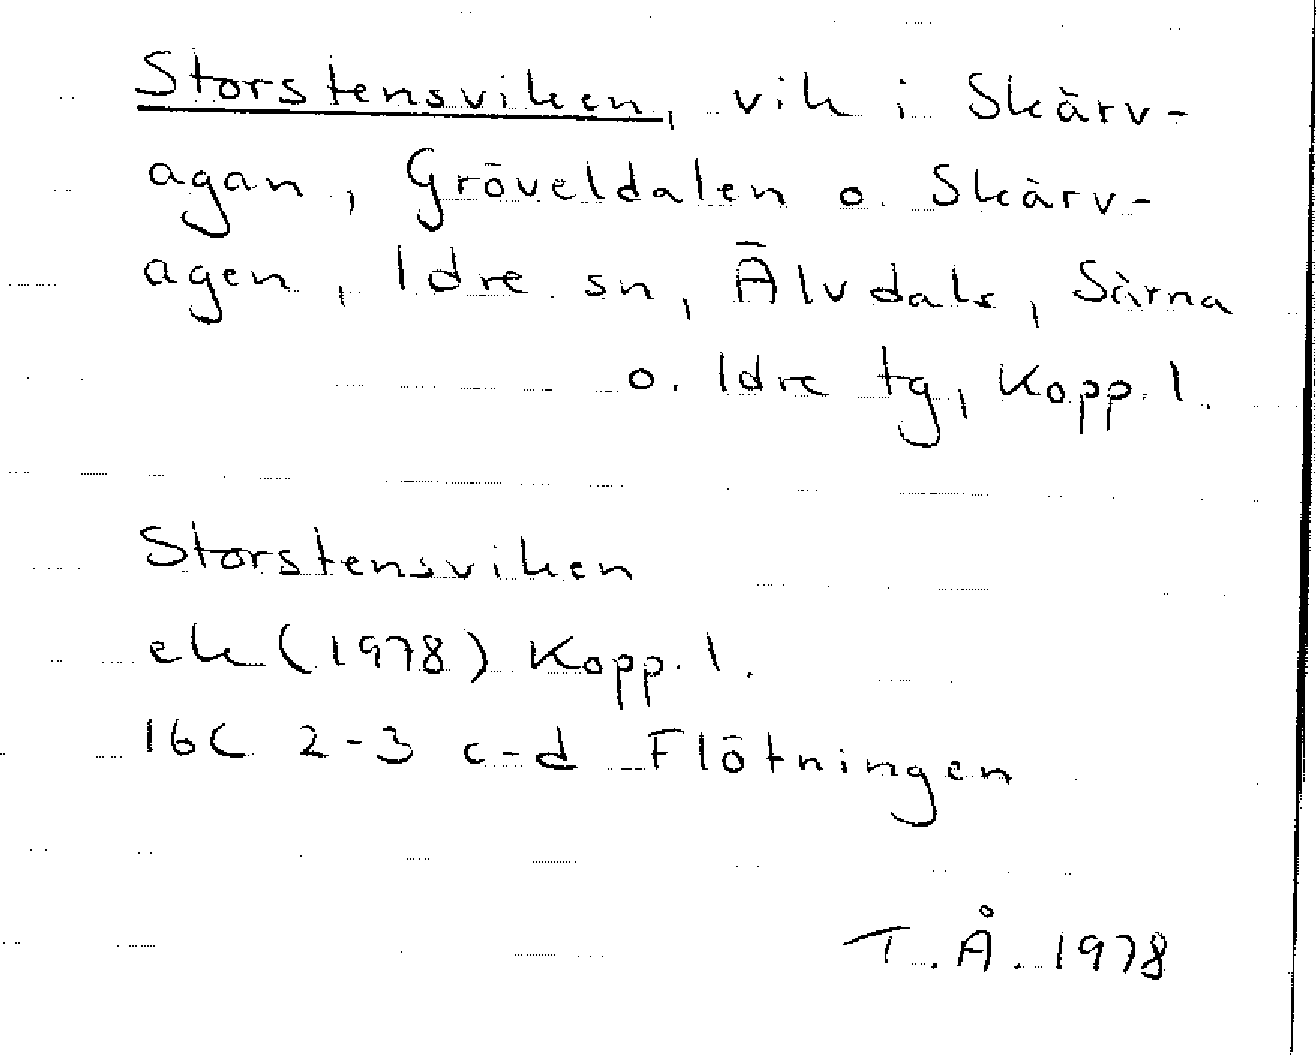 Storstensviken, vik i Skärv-
agan, Gröveldalen o. Skärv-
agen, Idre sn, Älvdals, Särna
o. Idre tg, Kopp. l.
Storstensviken
ek (1978) Kopp. l.
16C 2-3 c-d Flötningen
T. Å. 1978